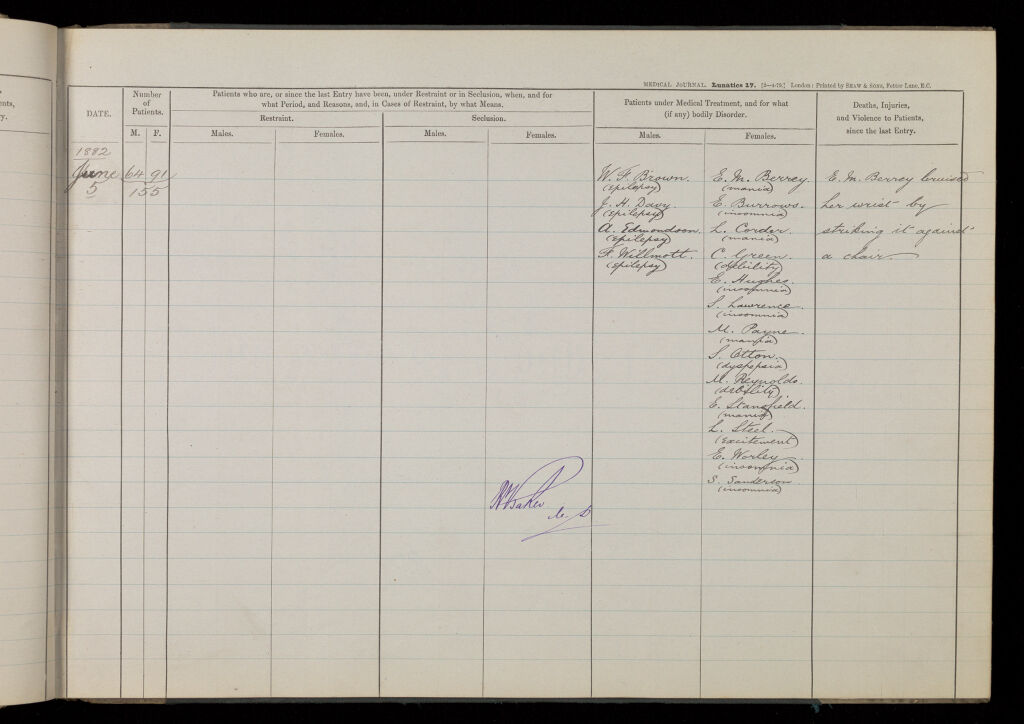 MEDICAL JOURNAL. Lunatics 17. [3—4-79.] London: Printed by SHAW & SONS, Fetter Lane, E.C.
DATE.
Number
of
Patients.
M. F.
Patients who are, or since the last Entry have been, under Restraint or in Seclusion, when, and for
what Period, and Reasons, and, in Cases of Restraint, by what Means.
Restraint.
Males. Females.
Seclusion.
Males. Females.
Patients under Medical Treatment, and for what
(if any) bodily Disorder.
Males. Females.
Deaths, Injuries,
and Violence to Patients,
since the last Entry.
1882
June 64 91
5 155
W. F. Brown.
(epilepsy)
J. H. Davy.
(epilepsy)
A. Edmondson.
(epilepsy)
F. Willmott.
(epilepsy)
E. M. Berrey.
(mania)
E. Burrows.
(insomnia)
L. Corder.
(mania)
C. Green.
(debility)
E. Hughes.
(insomnia)
S. Lawrence.
(insomnia)
M. Payne.
(mania)
S. Otton.
(dyspepsia)
M. Reynolds.
(debility)
E. Stansfield.
(mania)
L. Steel.
(excitement)
E. Worley
(insomnia)
S. Sanderson
(insomnia)
E. M. Berrey bruised
her wrist by
striking it against
a chair
Baker
ents,
y.